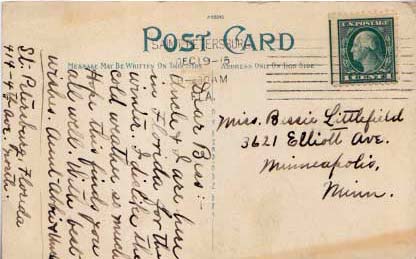 POST CARD
MESSAGE MAY BE WRITTEN ON THIS SIDE
ADDRESS ONLY ON THIS SIDE
PETERSBURG
DEC 19-15
30AM
LA.
U.S. POSTAGE
1 CENT 1
Dear Bess:-
Uncle & I are fine
in Florida for the
winter. I dislike the
cold weather so much
Hope this finds you
all well. With best
wishes. Aunt
St. Petersburg, Florida
4th Ave. North.
Miss. Bessie Littlefield
3621 Elliott Ave.
Minneapolis,
Minn.